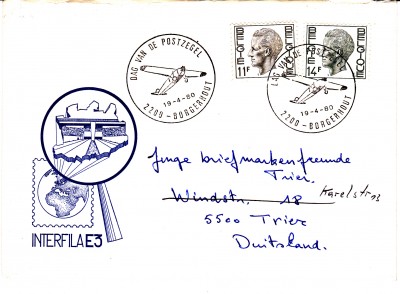 DAG VAN DE POSTZEGEL
19-4-80
2200-BORGERHOUT
11F
14F
DAG VAN DE POSTZEGEL
19-4-80
2200-BORGERHOUT
Junge briefmarkenfreunde
Trier.
Windstr, 18 Karelstr
5500 Trier
Duitsland.
INTERFILA E3